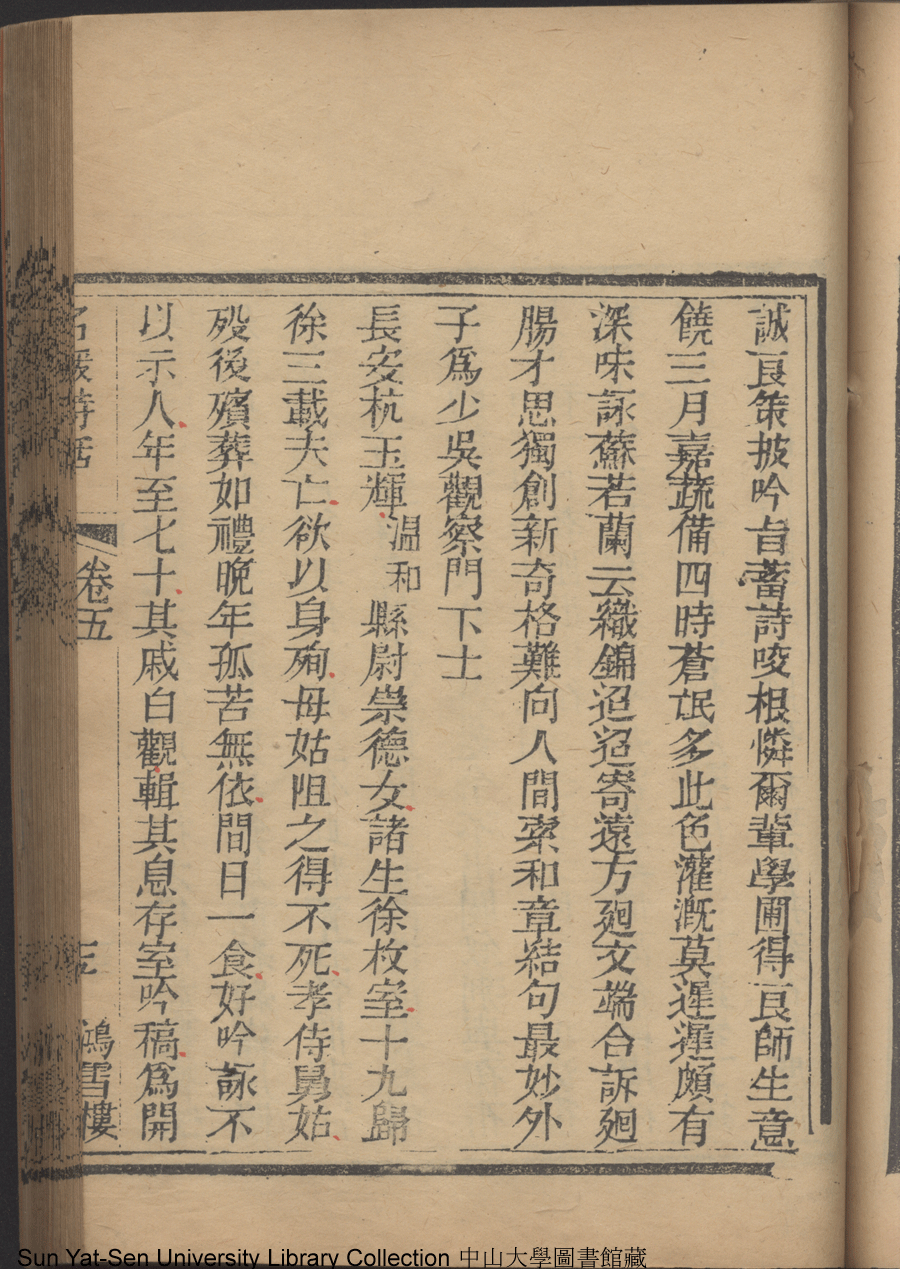 誠良策披吟旨蓄詩咬根憐爾輩學圃得良師生意
饒三月嘉蔬備四時蒼氓多此色灌溉莫遲遲頗有
深味詠蘇若蘭云織錦迢迢寄遠方廻文端合訴廻
腸才思獨創新奇格難向人間索和章結句最妙外
子爲少吳觀察門下士
長安杭玉輝溫和縣尉崇德女諸生徐枚室十九歸
徐三載夫亡欲以身殉母姑阻之得不死孝侍舅姑
歿後殯葬如禮晚年孤苦無依間日一食好吟詠不
以示人年至七十其戚白觀輯其息存室吟稿爲開
名媛詩話 卷五 鴻雪樓
Sun Yat-Sen University Library Collection 中山大學圖書館藏